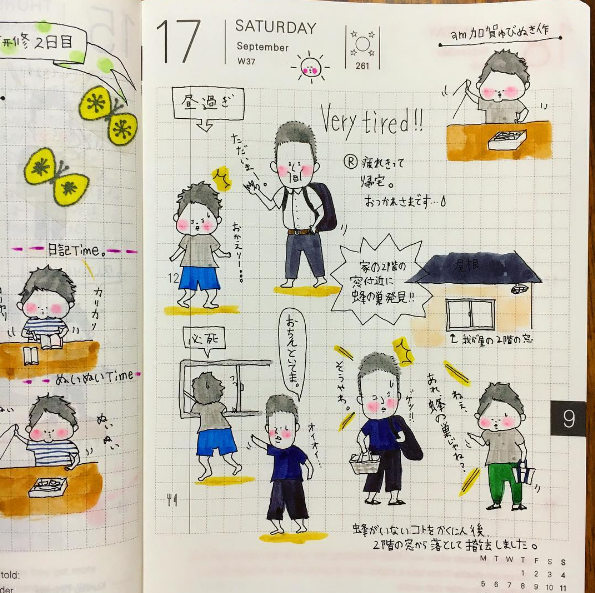 研修2日目
日記Time。
カリカリ
ぬいぬいTime
ぬい
ぬい
told:
17
SATURDAY
September
W37
261
am加賀ゆびぬき作
昼過ぎ
Very tired!!
ただいまー
おかえりー…。
R 疲れきって
帰宅。
おつかれさまです…
12
家の2階の
窓付近に
蜂の巣発見!!
屋根
我が家の2階の窓
必死
おちんといてま。
オイオイ
そうやね。
ゲッ!!
ねぇ、
あれ蜂の巣じゃね?
9
蜂がいないコトをかくにん後、
2階の窓から落として撤去しました。
M T W T F S S
1 2 3 4
5 6 7 8 9 10 11